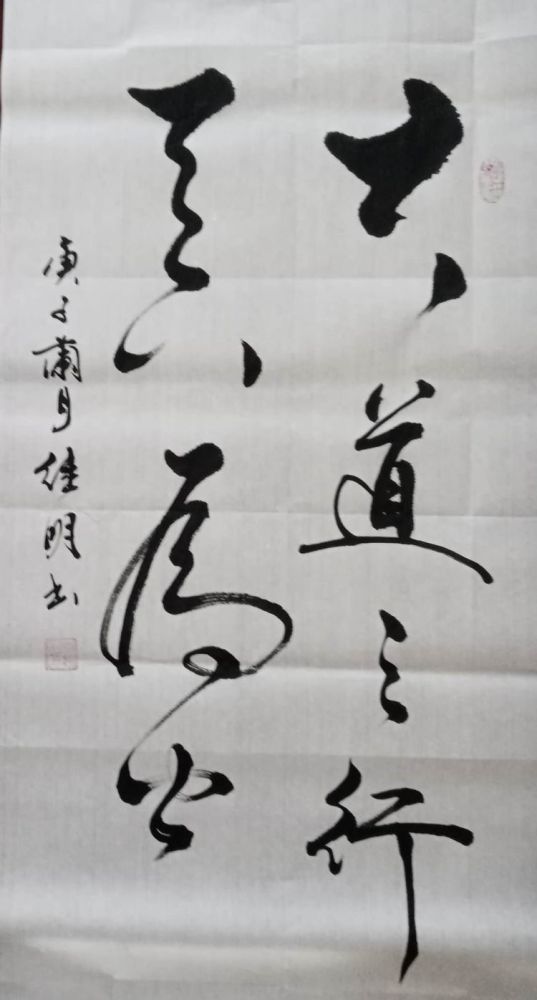 大道之行
天下為公
庚子蘭月佳明书